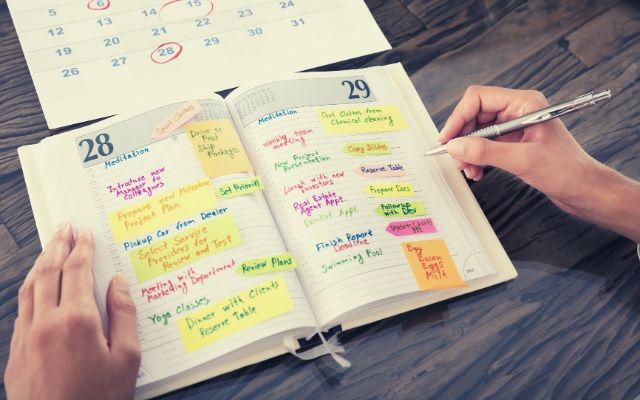 5 6 8
14 15 17
12 13 21 22 23 24
19 20 28 29 30 31
26 27
28
Send Clothes
Drive to
Post
Ship
Packages
Meditation
Introduce new
Manager to
Colleagues
Set Priority
Prepare new Milestone
Project Plan
Pickup Car from Dealer
Select Service
Providers for
Review and Test
Meeting with
Marketing Department
Review Plans
Yoga Classes
Dinner with Clients
Reserve Table
29
Meditation
Got Clothes from
Chemical cleaning
Weekly team
meeting
Copy Slides
New Project
Presentation
Reserve Table
Lunch with new
Investors
Prepare Docs
Real Estate
Agent Appt.
Followup
with Dev
Dentist Appt.
Update Charts
Finish Report
Deadline
Swimming Pool
Buy
Bacon
Eggs
Milk